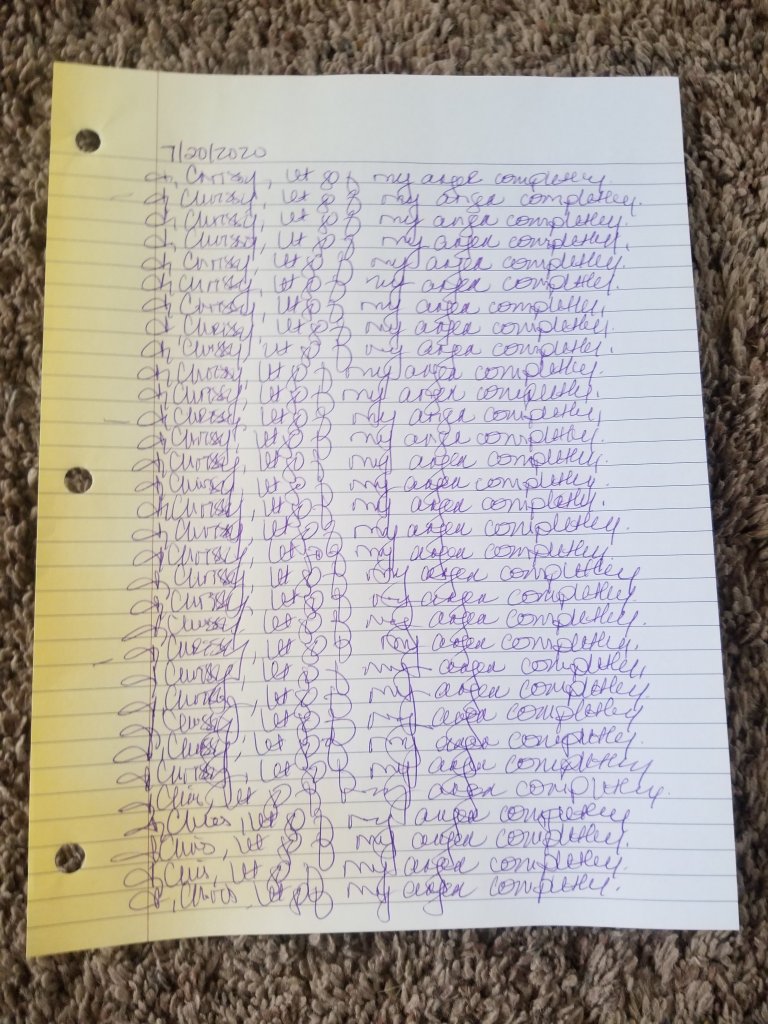 7/20/2020
I, Chrissy, let go of my anger completely.
I, Chrissy, let go of my anger completely.
I, Chrissy, let go of my anger completely.
I, Chrissy, let go of my anger completely.
I, Chrissy, let go of my anger completely.
I, Chrissy, let go of my anger completely.
I, Chrissy, let go of my anger completely.
I, Chrissy, let go of my anger completely.
I, Chrissy, let go of my anger completely.
I, Chrissy, let go of my anger completely.
I, Chrissy, let go of my anger completely.
I, Chrissy, let go of my anger completely.
I, Chrissy, let go of my anger completely.
I, Chrissy, let go of my anger completely.
I, Chrissy, let go of my anger completely.
I, Chrissy, let go of my anger completely.
I, Chrissy, let go of my anger completely.
I, Chrissy, let go of my anger completely.
I, Chrissy, let go of my anger completely
I, Chrissy, let go of my anger completely
I, Chrissy, let go of my anger completely.
I, Chrissy, let go of my anger completely.
I, Chrissy, let go of my anger completely
I, Chrissy, let go of my anger completely
I, Chrissy, let go of my anger completely
I, Chrissy, let go of my anger completely.
I, Chrissy, let go of my anger completely
I, Chris, let go of my anger completely.
I, Chris, let go of my anger completely
I, Chris, let go of my anger completely.
I, Chris, let go of my anger completely.
I, Chris, let go of my anger completely.